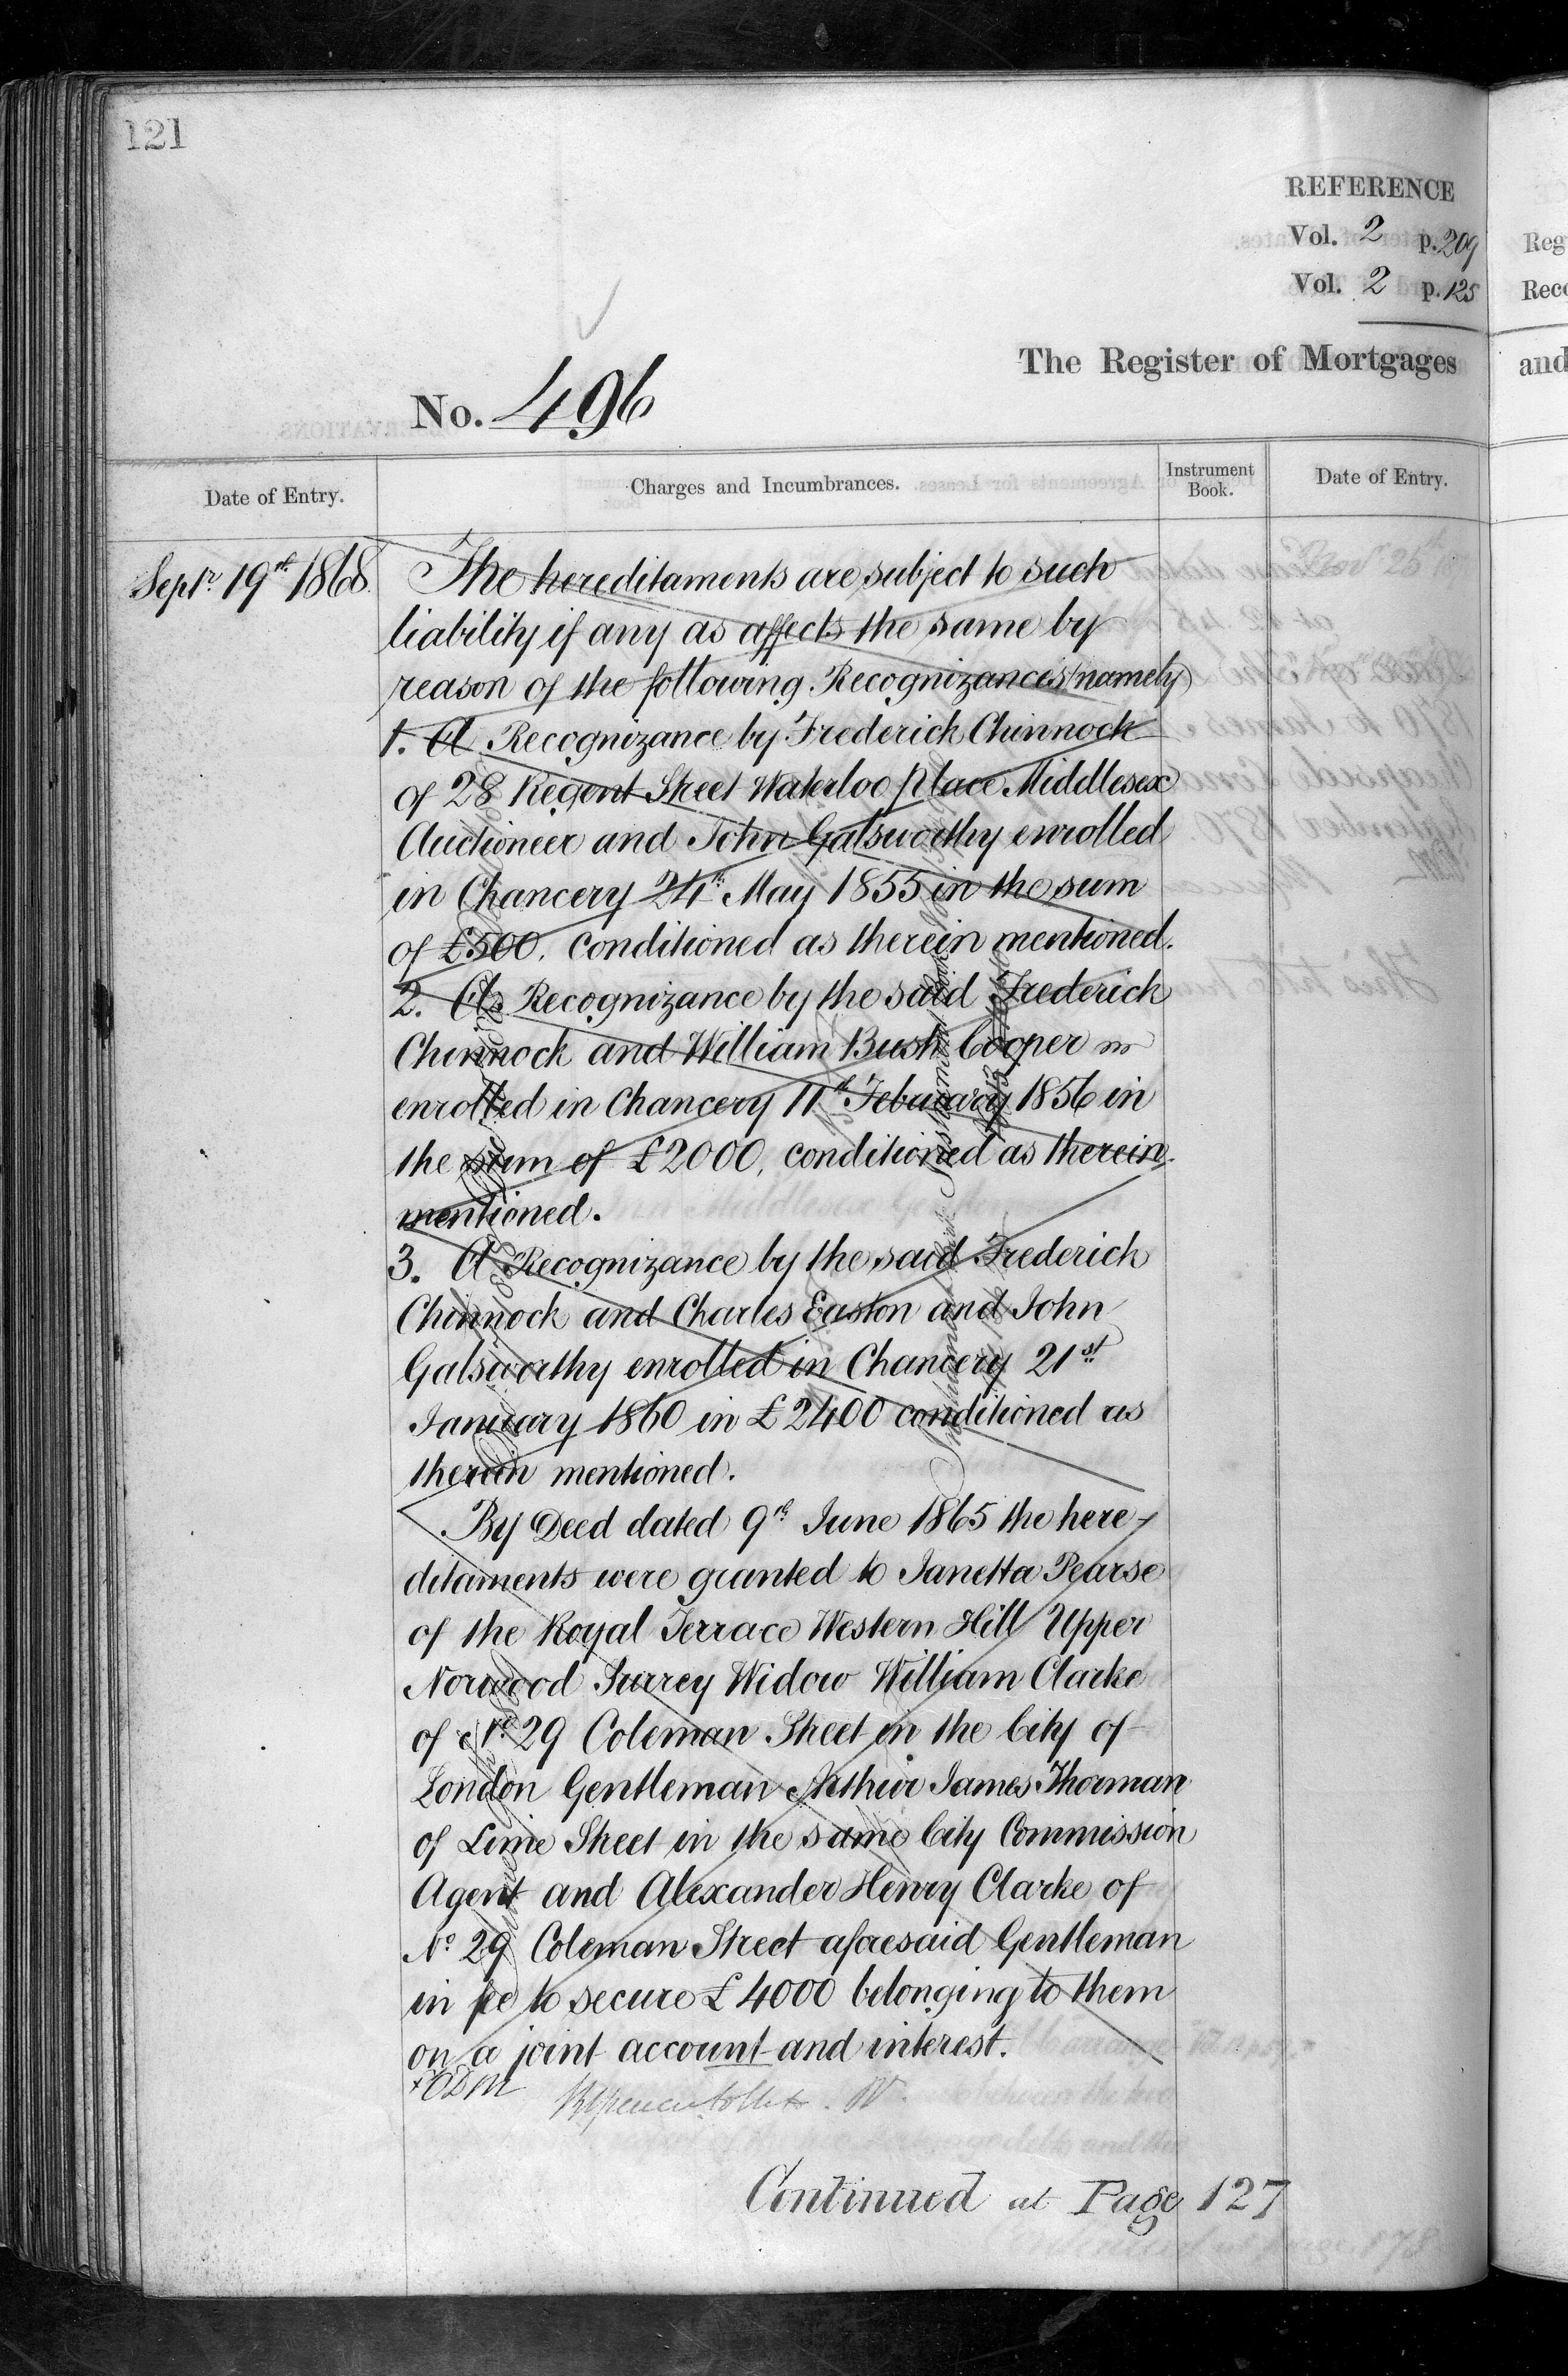 121
REFERENCE
Vol. 2 p. 209
Vol. 2 p. 125
The Register of Mortgages
No. 496
Date of Entry.
Charges and Incumbrances.
Instrument Book.
Date of Entry.
Septr. 19th 1868.
The hereditaments are subject to such
liability if any as affects the same by
reason of the following Recognizances (namely)
1. A Recognizance by Frederick Chinnock
of 28 Regent Street Waterloo place Middlesex
Auctioneer and John Galsworthy enrolled
in Chancery 24th May 1855 in the sum
of £500. conditioned as therein mentioned.
2. A Recognizance by the said Frederick
Chinnock and William Bush Cooper
enrolled in Chancery 11th February 1856 in
the sum of £2000, conditioned as therein
mentioned.
3. A Recognizance by the said Frederick
Chinnock and Charles Easton and John
Galsworthy enrolled in Chancery 21st
January 1860 in £2400 conditioned as
therein mentioned.
By Deed dated 9th June 1865 the here-
ditaments were granted to Janetta Pearse
of the Royal Terrace Western Hill Upper
Norwood Surrey Widow William Clarke
of No. 29 Coleman Street in the City of
London Gentleman Arthur James Thorman
of Lime Street in the same City Commission
Agent and Alexander Henry Clarke of
No. 29 Coleman Street aforesaid Gentleman
in fee to secure £4000 belonging to them
on a joint account and interest.
Continued at Page 127
Reg
Reco
and